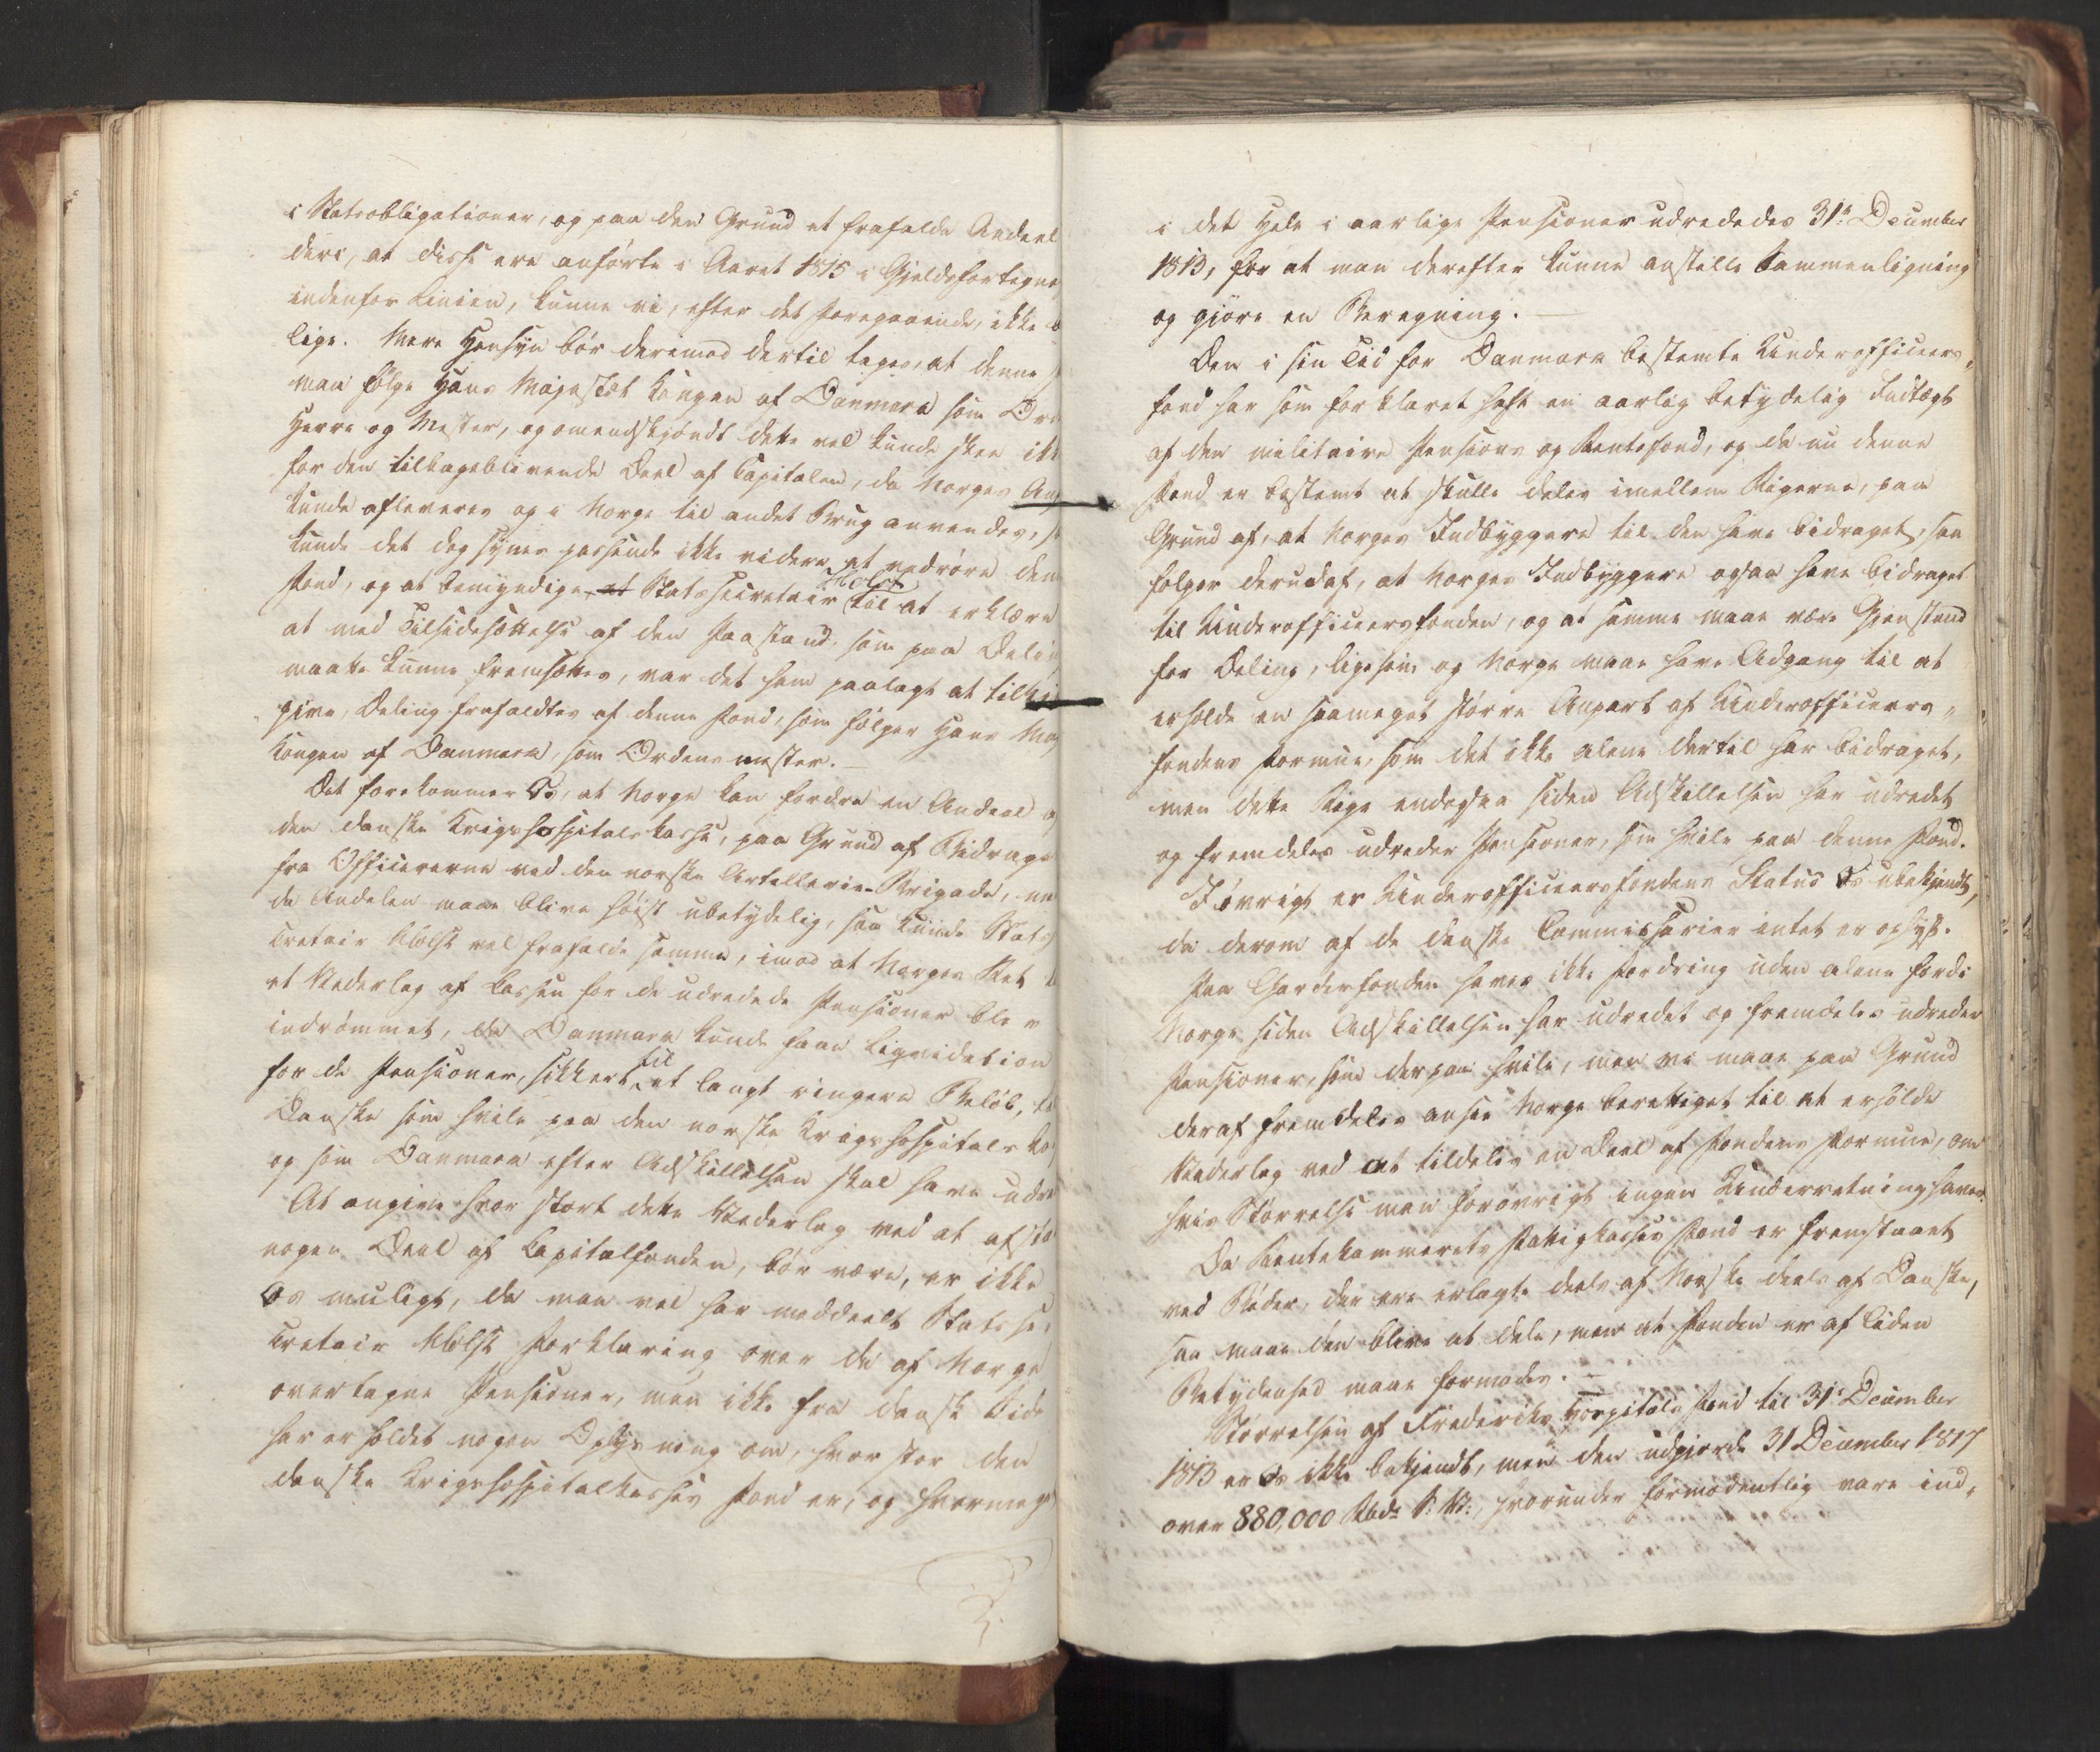 i Statsobligationer, og paa den Grund at frafalde Andeel
deri, at disse ere anførte i Aaret 1815 i Gjeldsfortegne
indenfor Linien, kunne vi, efter det Foregaaende, ikke
lige. Mere Hensyn bør derimod dertil tages, at denne
maa følge Hans Majestæt Kongen af Danmark som
Herre og Mester, og omendskjøndt dette vel kunde skee
for den tilbageblivende Deel af Capitalen, da Norges
kunde afleveres og i Norge til andet Brug anvendes,
kunde det dog synes passende ikke videre at vedrøre den
Fond, og at bemyndige Statssecretair Holst til at erklære
at med Tilsidesættelse af den Paastand, som paa
maatte kunne fremsættes, var det ham paalagt at
give, Deling frafaldtes af denne Fond, som følger Hans
Kongen af Danmark, som Ordens mester.
Det forekommer Os, at Norge kan fordre en Andeel
den danske Krigshospitalskasse, paa Grund af Bidrage
fra Officererne ved den norske Artillerie-Brigade,
da Andelen maae blive høist ubetydelig, saa kunde Stats
cretair Holst vel frafalde samme, imod at Norges Ret
et Vederlag af Cassen for de udredede Pensioner blev
indrømmet, da Danmark kunde faae Liqvidation
for de Pensioner, sikkert til et langt ringere Beløb,
Danske som hvile paa den norske Krigshospitals
og som Danmark efter Adskillelsen skal have
At angive hvor stort dette Vederlag ved at
nogen Deel af Capitalfonden, bør være, er ikke
Os muligt, da man vel har meddeelt Statsse,
cretair Holst Forklaring over de af Norge
overtagne Pensioner, men ikke fra dansk Side
har erholdet nogen Oplysning om, hvor stor den
danske Krigshospitalkasses Fond er, og hvormeget
i det Hele i aarlige Pensioner udrededes 31te December
1813, for at man derefter kunne anstille Sammenligning
og gjøre en Beregning.
Den i sin Tid for Danmark bestemte Underofficeers,
fond har som forklaret havt en aarlig betydelig Indtægt
af den militaire Pensions og Rentefond, og da nu denne
Fond er bestemt at skulle deles imellem Rigerne, paa
Grund af, at Norges Indbyggere til den have bidraget, saa
følger derudaf, at Norges Indbyggere ogsaa have bidraget
til Underofficeersfonden, og at samme maae være Gjenstand
for Deling, ligesom og Norge maae have Adgang til at
erholde en saameget større Anpart af Underofficeers,
fondens Formue, som det ikke alene dertil har bidraget,
men dette Rige endogsaa siden Adskillelsen har udredet
og fremdeles udreder Pensioner, som hvile paa denne Fond.
Iøvrigt er Underofficeersfondens Status Os ubekjendt,
da derom af de danske Commissarier intet er oplyst.
Paa Garderfonden haves ikke Fordring uden alene fordi
Norge siden Adskillelsen har udredet og fremdeles udreder
Pensioner, som derpaa hvile, men vi maae paa Grund
deraf fremdeles ansee Norge berettiget til at erholde
Vederlag ved at tildeles en Deel af Fondens Formue, om
hvis Størrelse man forøvrigt ingen Underretning haver.
Da Rentekammerets Fattigkasses Fond er fremstaaet
ved Bøder, der ere erlagte deels af Norske deels af Danske,
saa maae den blive at dele, men at Fonden er af liden
Betydenhed maae formodes.
Størrelsen af Frederiks Hospitals Fond til 31te December
1813 er Os ikke bekjendt, men den udgjorde 31 December 1817
over 880,000 Rbdr S: V:, hvorunder formodentlig vare ind,